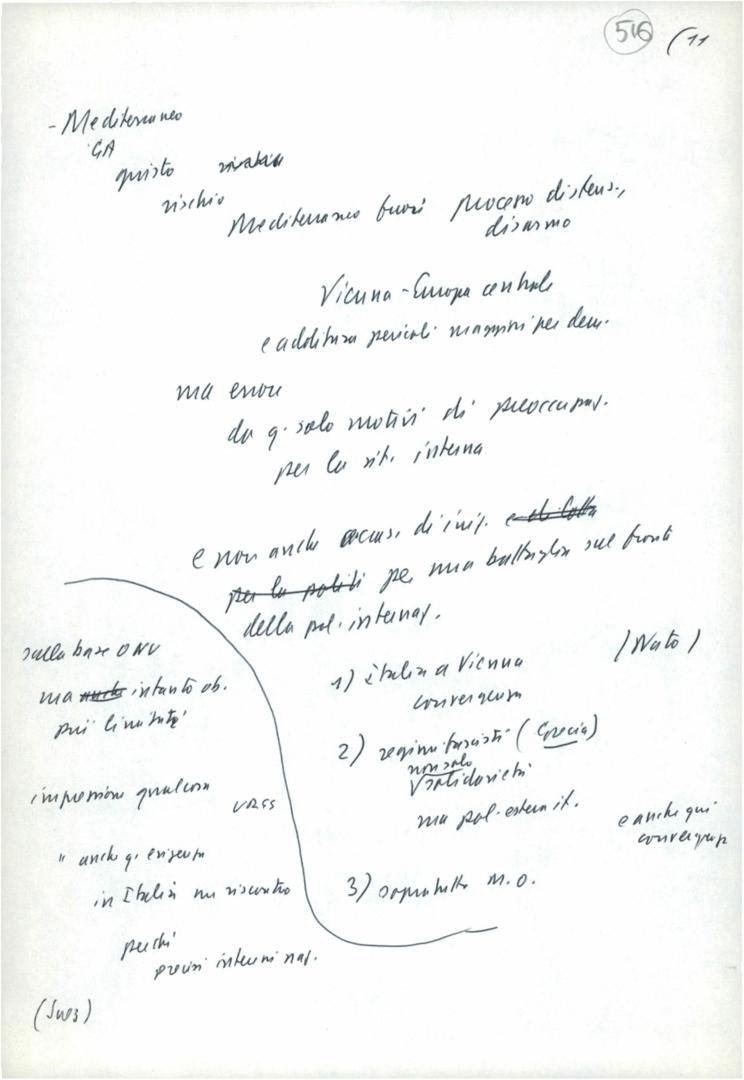 516 (11
- Mediterraneo
GA
giusto
rischio
Mediterraneo fuori processo distens.,
disarmo
Vienna - Europa centrale
e addittura pericoli maggiori per dem.
ma errore
da q. solo motivi di preoccupaz.
per la sit. interna
e non anche occas. di iniz. e di lotta
per la politi per una battaglia sul fronte
della pol. internaz.
1) Italia a Vienna (Nato)
convergenza
2) regimi fascisti (Grecia)
non solo
solidarietà
ma pol. estera it.
e anche qui
convergenze
3) soprattutto M.O.
sulla base ONU
ma intanto ob.
più limitati
impressione qualcosa
URSS
" anche q. esigenza
in Italia un riscontro
perché
precisi interessi naz.
(Suez)